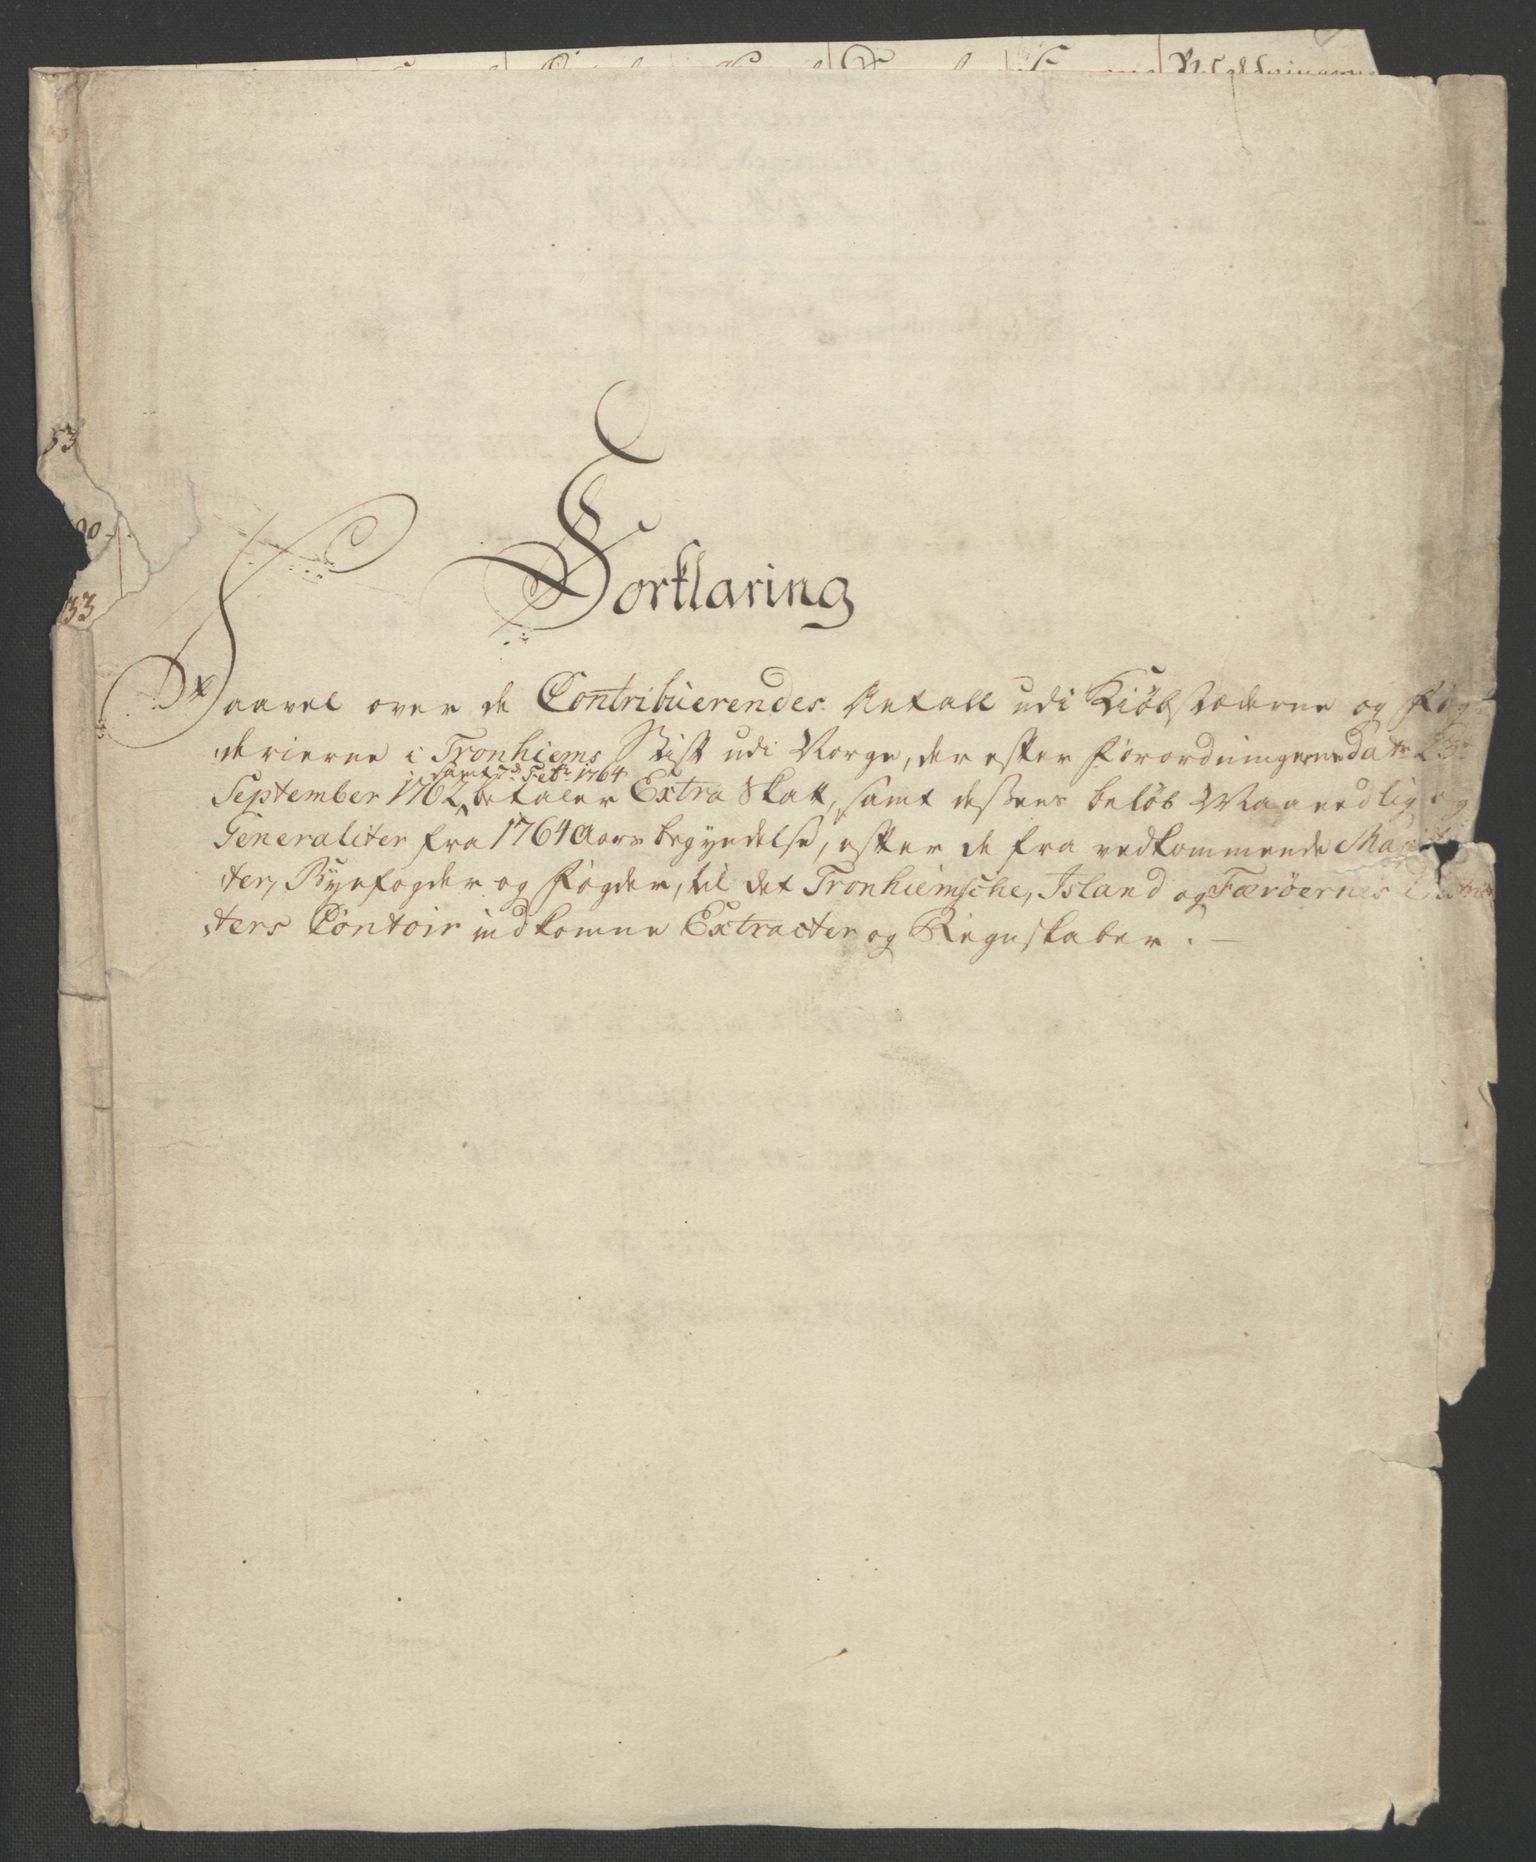 53
33
Forklaring
Saavel over de Contribuerendes Antall udi Kiøbstæderne og Fog-
derierne i Tronhiems Stift udi Norge, der efter Forordningerne Dato 23de
samt 7de Febr 1764
September 1762, betaler Extra Skatt, samt dessens beløb Maanedlig og
Generaliter fra 1764 Aars begyndelse, efter de fra vedkommende Magistra-
ter, Byefogder og Fogder, til det Tronhiemsche, Island og Færøernes
ters Contoir indkomne Extracter og Regnskaber. —